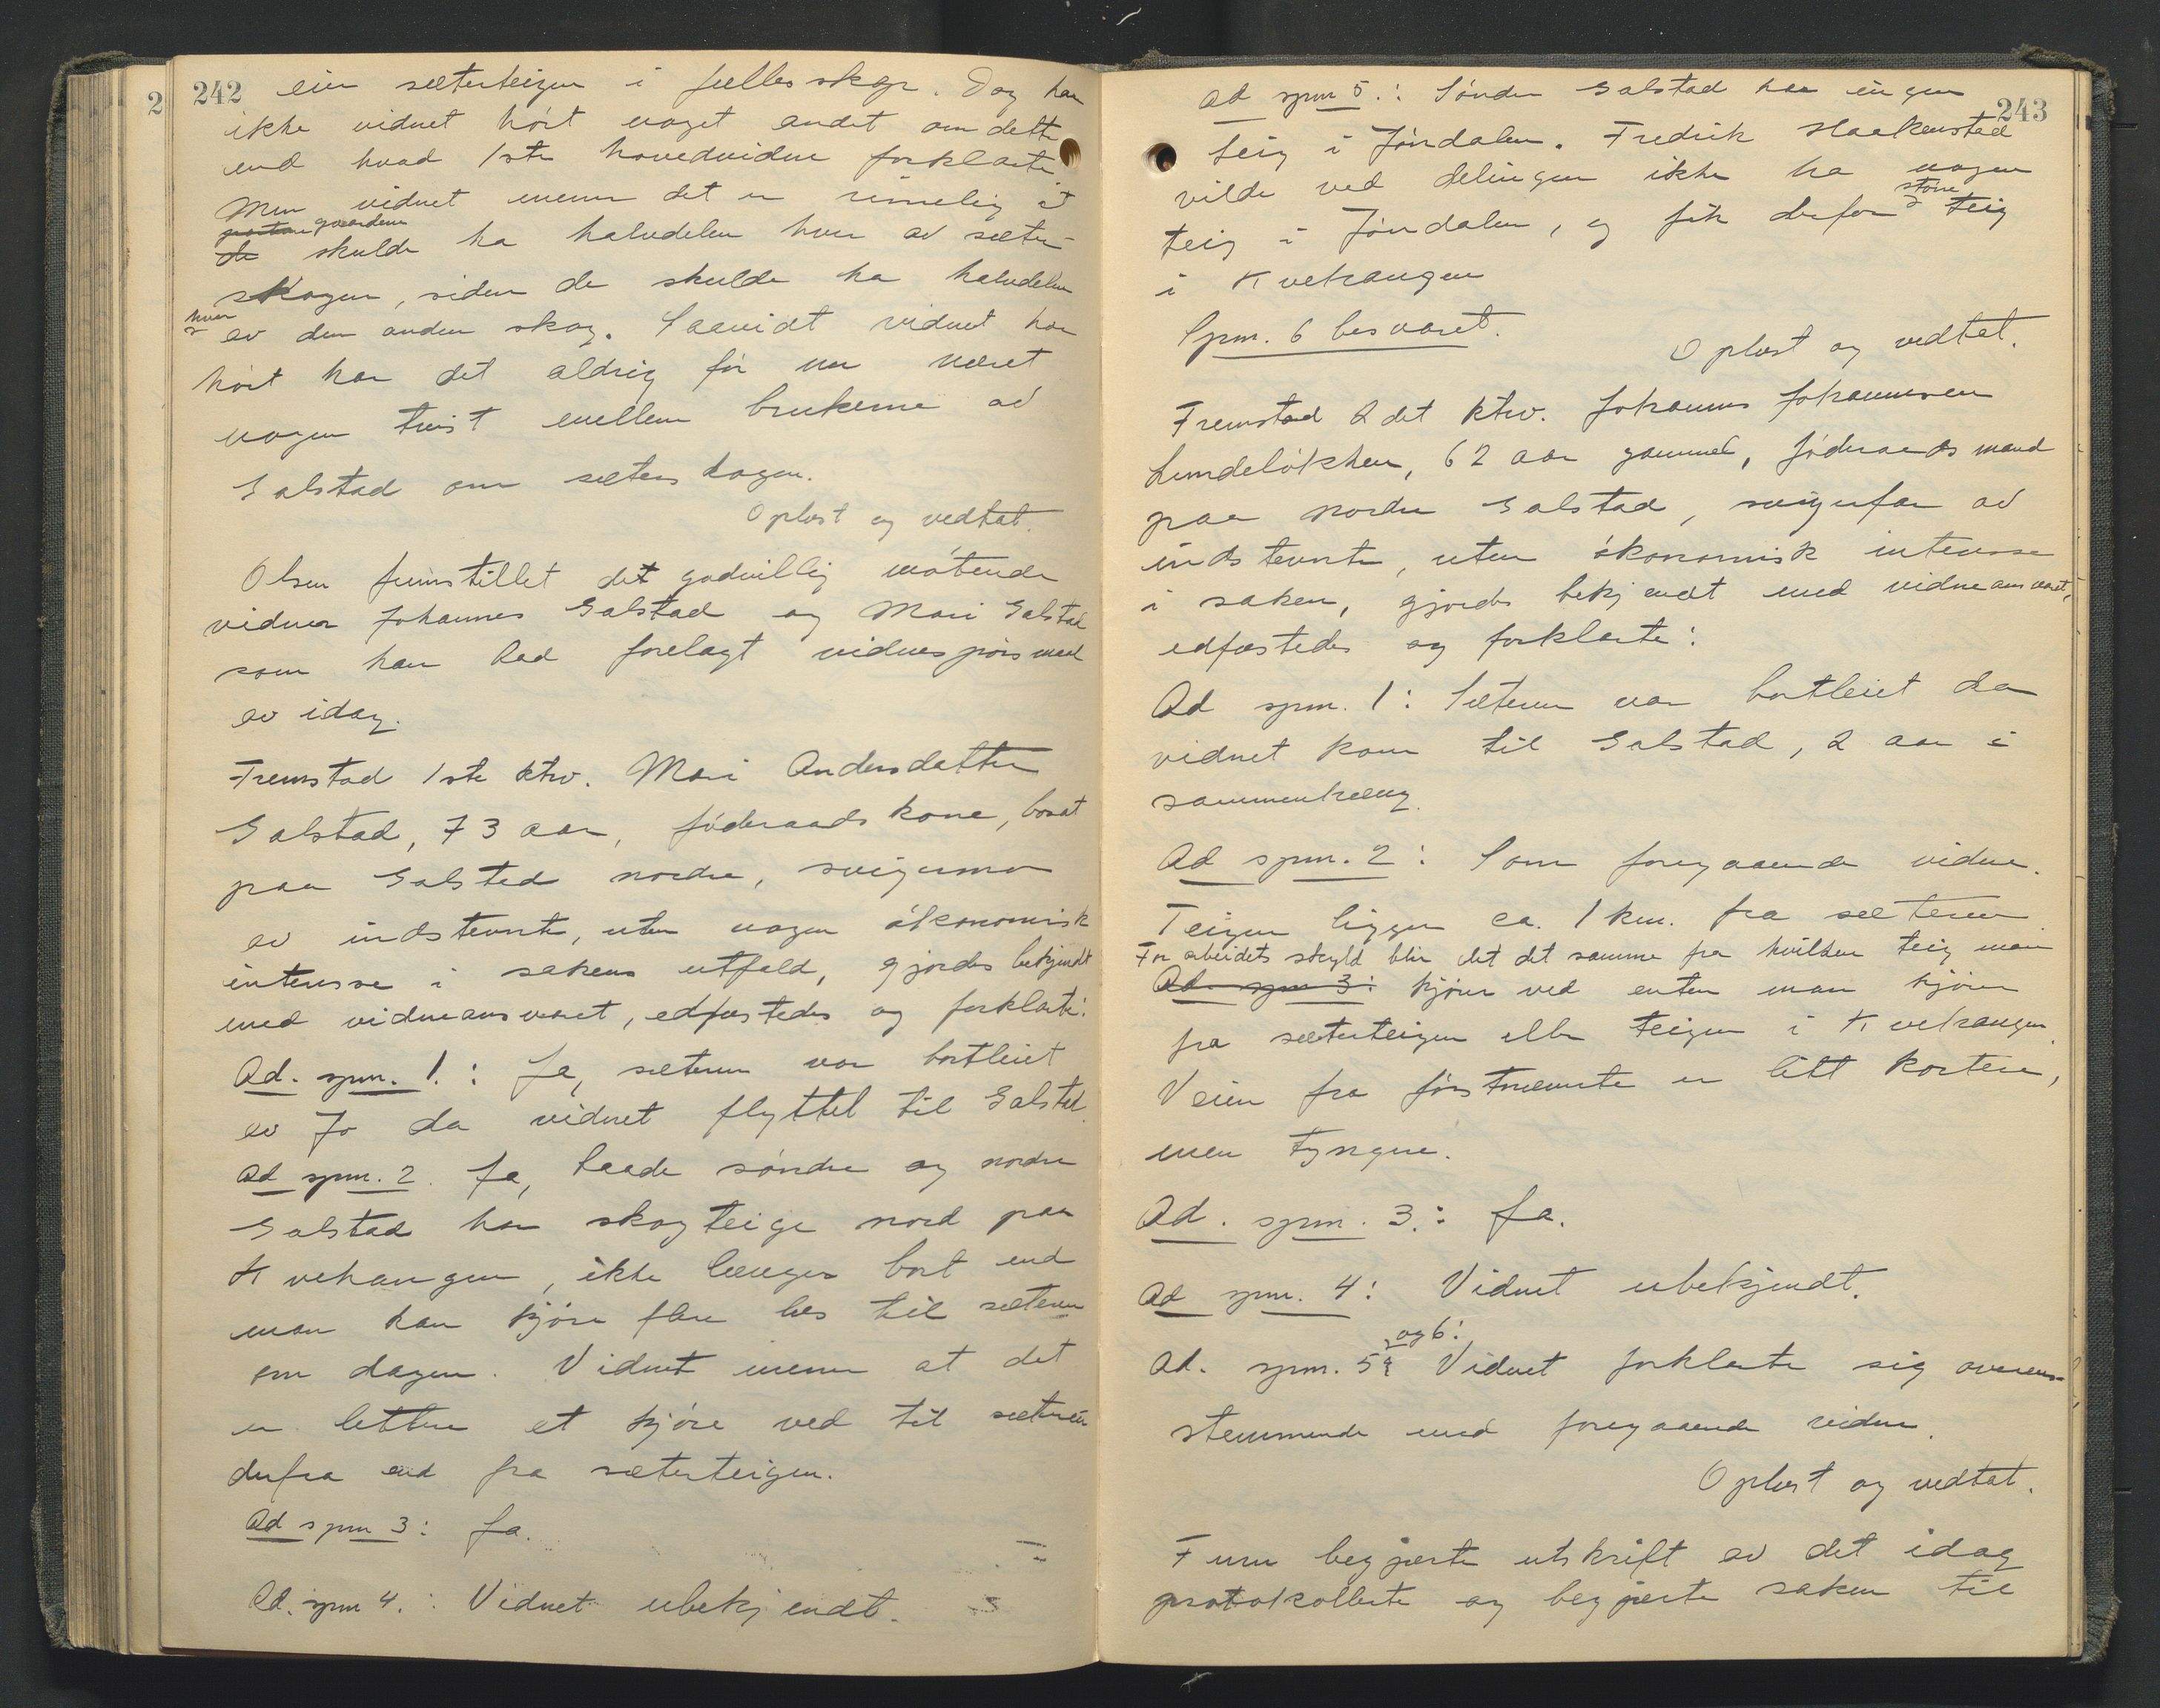 242
eier sæterteigen i fællesskap. Dog har
ikke vidnet hört noget andet om dette
end hvad 1ste hovedvidne forklarte
Men vidnet mener det er rimelig at
gaardene
de skulde ha halvdelen hver av sæter-
skogen, siden de skulde ha halvdelen
hver
av den anden skog. Saavidt vidnet har
hört har det aldrig för nu været
nogen tvist mellem brukerne av
Galstad om sæterskogen.
Oplæst og vedtat.
Olsen fremstillet det godvillig mötende
vidner Johannes Galstad og Mari Galstad
som han lod forelagt vidnespörsmaal
av idag.
Fremstod 1ste ktrv. Mari Andersdatter
Galstad, 73 aar, föderaadskone, bosat
paa Galstad nordre, svigermor
av indstevnte, uten nogen ökonomisk
interesse i sakens utfald, gjordes bekjendt
med vidneansvaret, edfæstedes og forklarte:
Ad. spm. 1.: Ja, sæteren var bortleiet
av Jo da vidnet flyttet til Galstad.
Ad spm. 2. Ja, baade söndre og nordre
Galstad har skogteige nord paa
Kvehaugen, ikke længer bort end
man kan kjöre flere læs til sæteren
om dagen. Vidnet mener at det
er lettere at kjöre ved til sæteren
derfra end fra sæterteigen.
Ad spm 3: Ja.
Ad. spm 4.: Vidnet ubekjendt.
243
Ad spm 5.: Söndre Galstad har ingen
teig i Jöndalen. Fredrik Haakenstad
vilde ved delingen ikke ha nogen
större
teig i Jöndalen, og fik derfor teig
i Kvehaugen
Spm. 6 besvaret.
Oplæst og vedtat.
Fremstod 2det ktrv. Johannes Johannesen
Lundelökken, 62 aar gammel, föderaadsmand
paa nordre Galstad, svigerfar av
indstevnte, uten ökonomisk interesse
i saken, gjordes bekjendt med vidneansvaret,
edfæstedes og forklarte:
Ad spm. 1: Sæteren var bortleiet da
vidnet kom til Galstad, 2 aar i
sammenhæng.
Ad spm. 2: Som foregaaende vidne.
Teigen ligger ca. 1 km. fra sæteren
For arbeidets skyld blir det det samme fra hvilken teig man
Ad spm 3: kjörer ved enten man kjörer
fra sæterteigen eller teigen i Kvehaugen.
Veien fra förstnævnte er litt kortere,
men tyngre.
Ad. spm. 3.: Ja.
Ad spm. 4: Vidnet ubekjendt.
og 6:
Ad. spm. 5 Vidnet forklarte sig overens-
stemmende med foregaaende vidne.
Oplæst og vedtat.
Furu begjærte utskrift av det idag
protokollerte og begjærte saken til